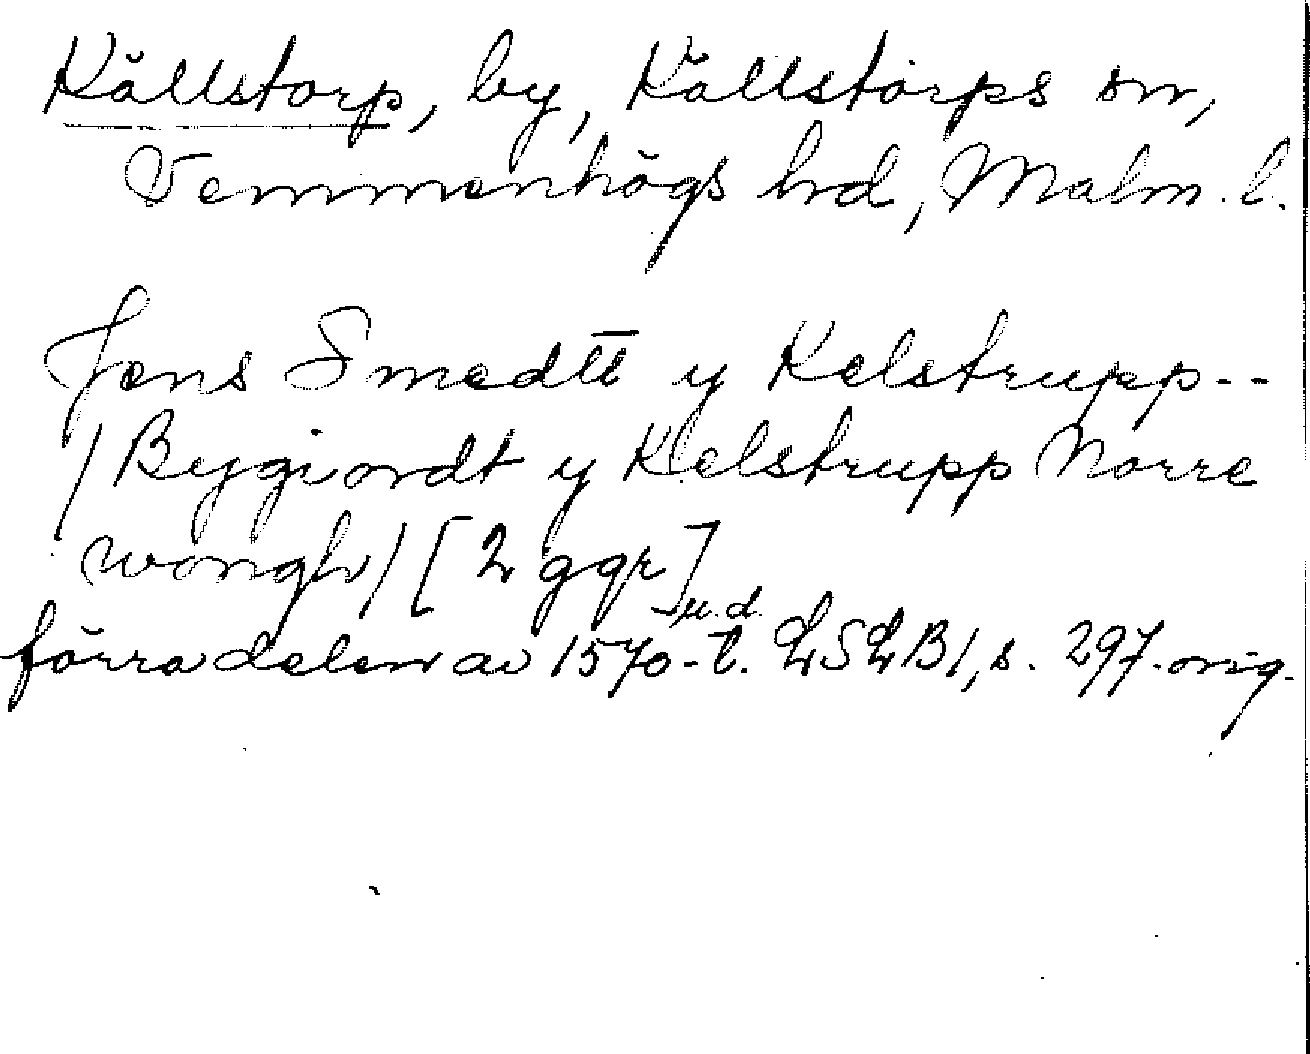 Källstorp, by, Källstorps sn,
Vemmenhögs hd, Malm. l.
Jens Smedtt y Kelstrupp--
/Bygiordt y Kelstrupp Norre
wongh/ [2 ggr]
u.d.
förra delen av 1570-t. LSLB1, s. 297. orig.